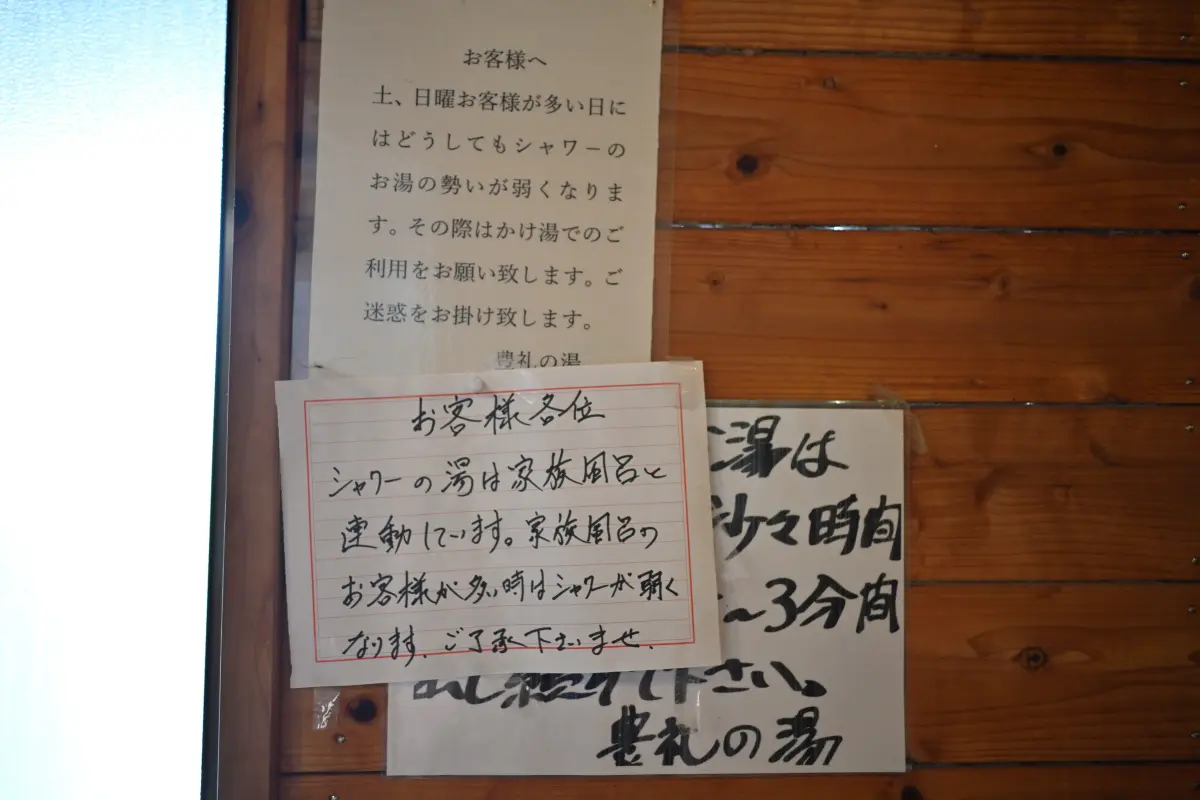 お客様へ
土、日曜お客様が多い日に
はどうしてもシャワーの
お湯の勢いが弱くなりま
す。その際はかけ湯でのご
利用をお願い致します。ご
迷惑をお掛け致します。
豊礼の湯
お客様各位
シャワーの湯は家族風呂と
連動しています。家族風呂の
お客様が多い時はシャワーが弱く
なります。ご了承下さいませ.
湯は
少々時間
〜3分間
出し続けて下さい。
豊礼の湯